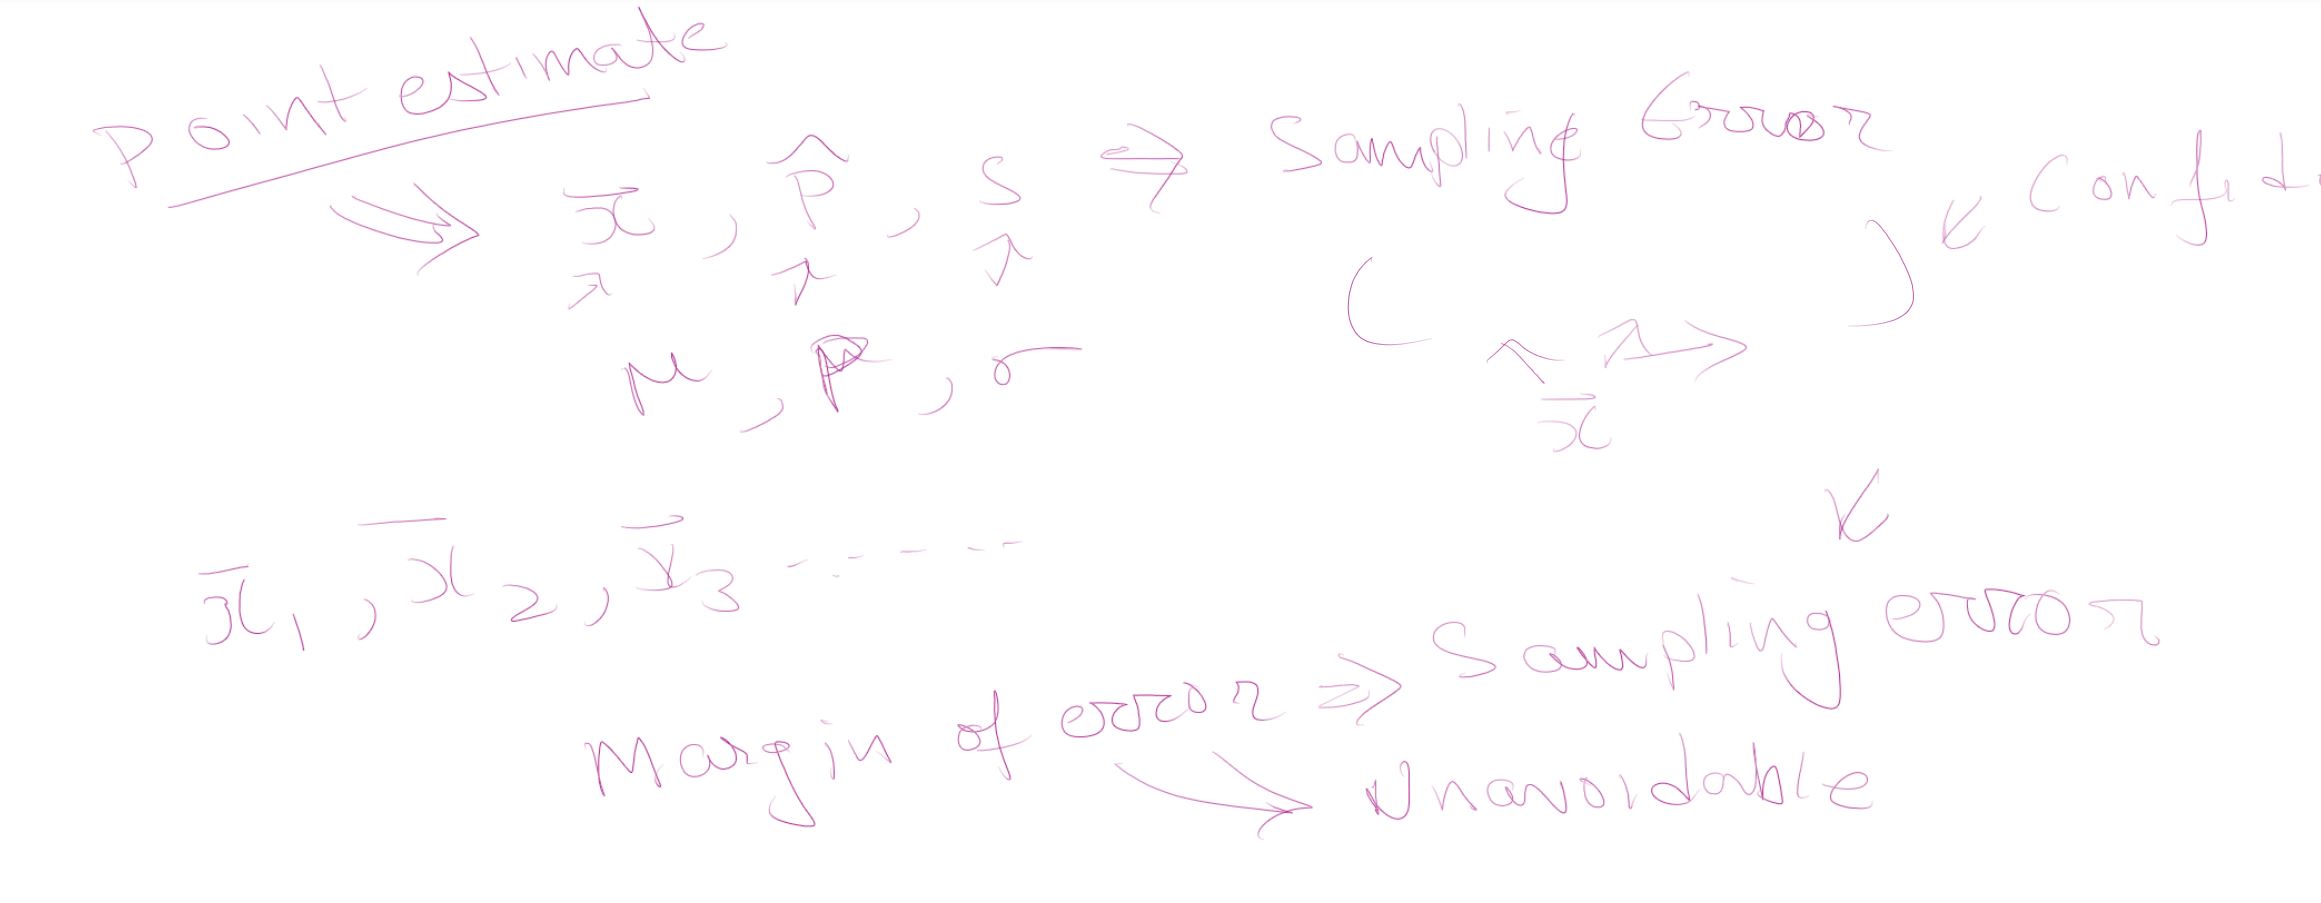 Point estimate
⇒ x̄ , p̂ , s ⇒ Sampling Error
μ , p , σ
( x̄ → ) ← Confid
x̄1 , x̄2 , x̄3 - - - - -
Margin of error ⇒ Sampling error
→ Unavoidable